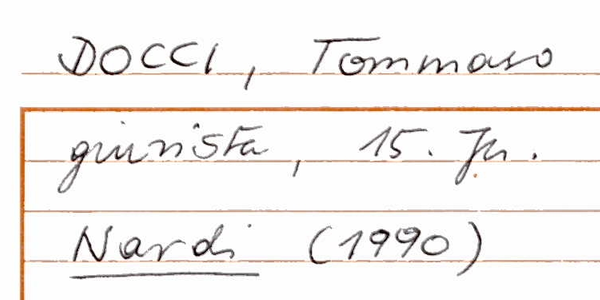 DOCCI, Tommaso
giurista, 15. Jh.
Nardi (1990)